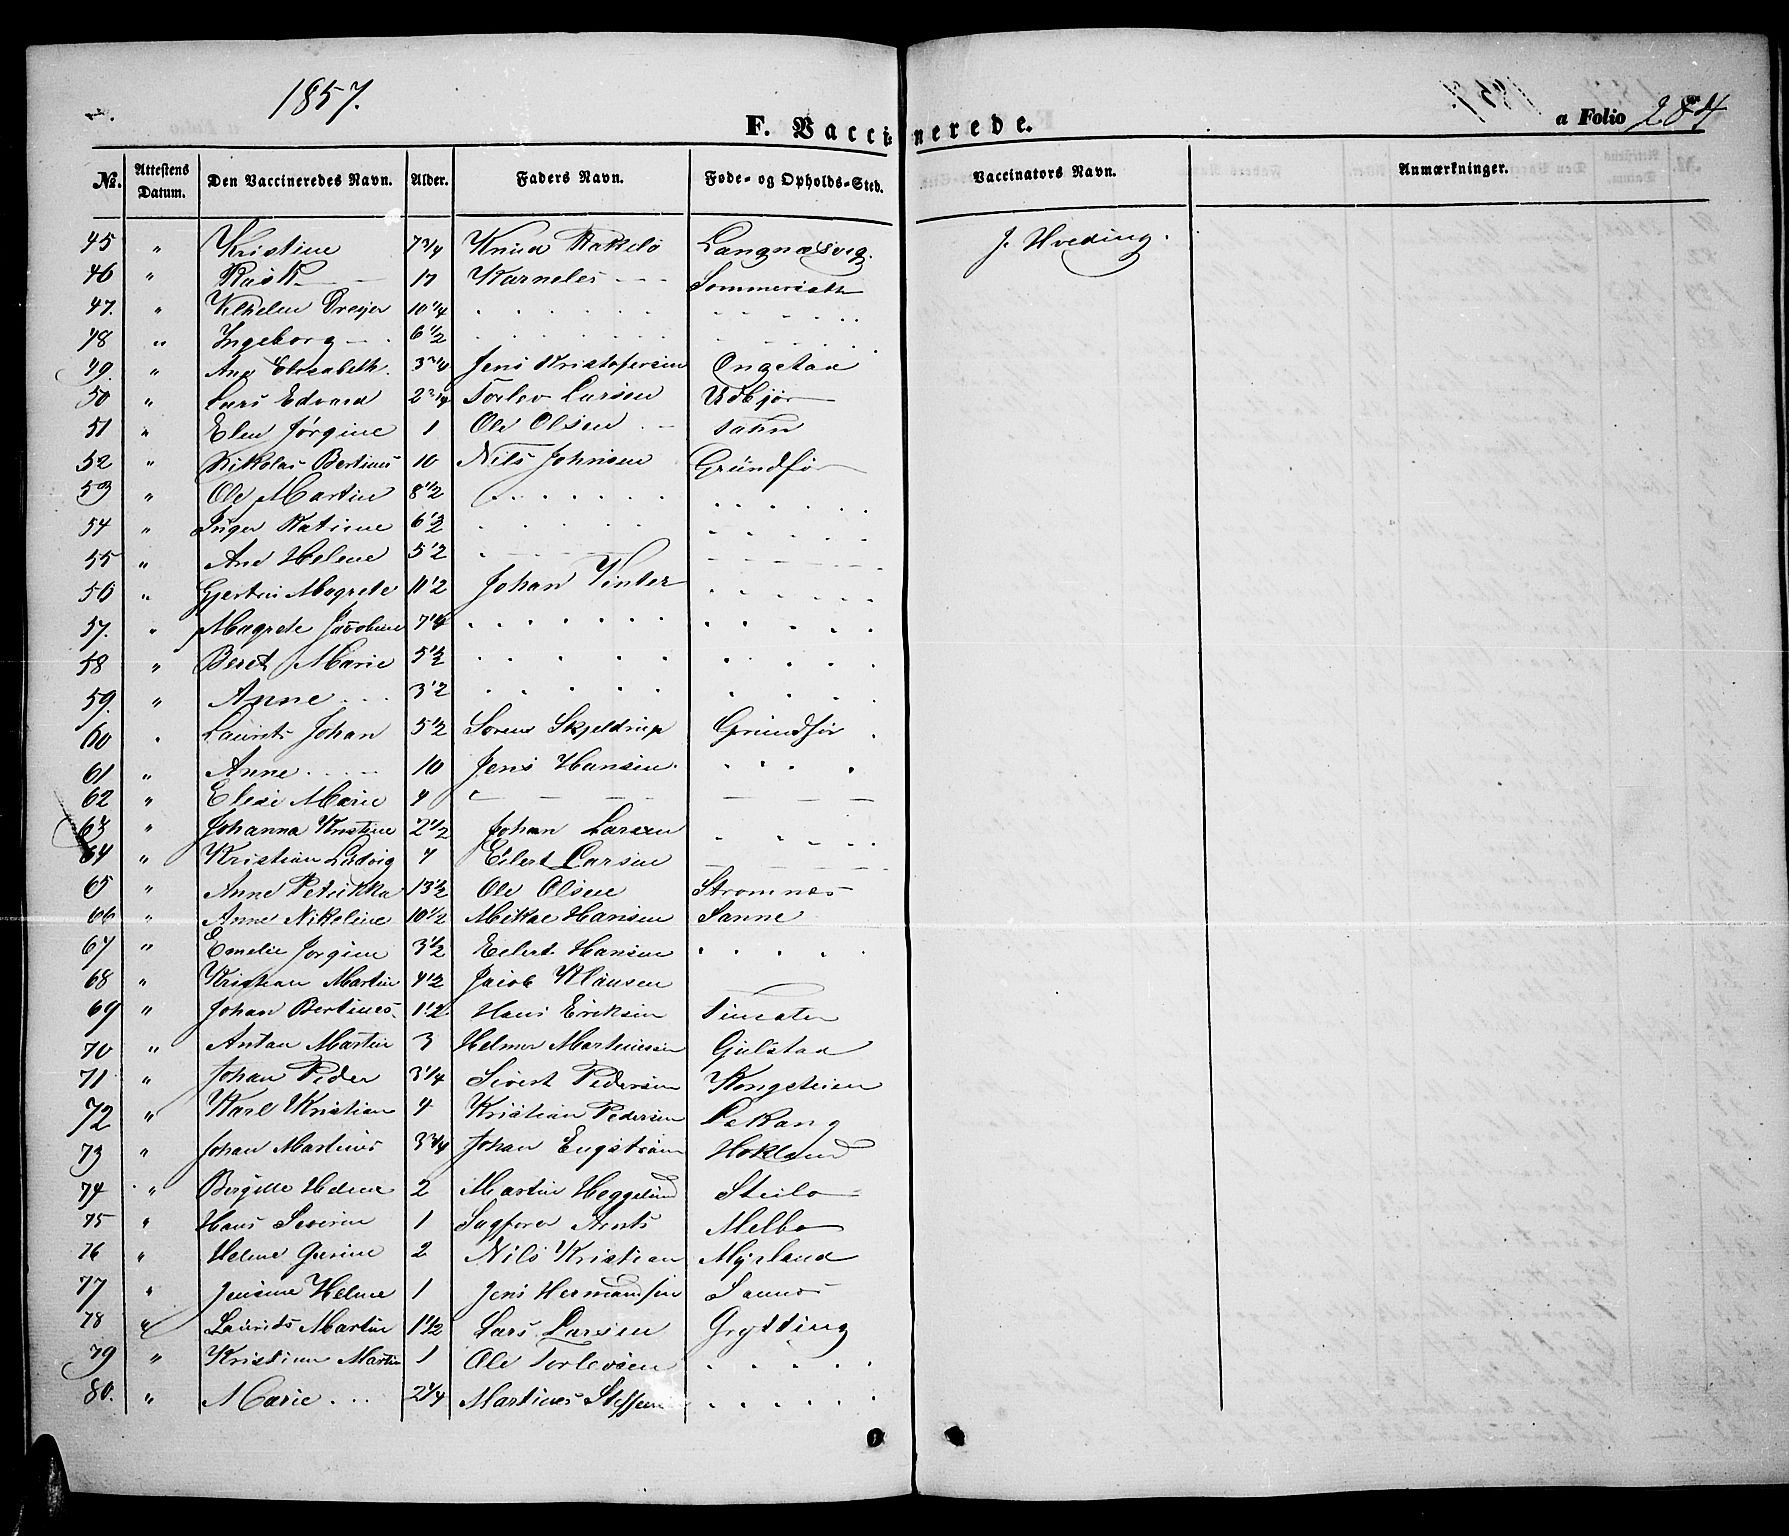 1857.
F. Vaccinerede.
a Folio 284
No. Attestens Datum. Den Vaccineredes Navn. Alder. Faders Navn. Føde- og Opholds-Sted. Vaccinators Navn. Anmærkninger.
45 " Kristine 7 3/4 Knud Langnæsvig. J. Hveding.
46 " 17 Karneles
47. " Dreyer 10 1/4
48 " Ingeborg 6 1/2
49. " Ane Elesabeth. 3 3/4 Jens Kristofersen Ongstad
50 " Lars Edvard 2 3/4 Torlev Larsen Udbjør
51 " Elen Jørgine 1 Ole Olsen
52 " Nikolai Bertinus 10 Nils Johnsen Gründfør
53 " Ole Martin 8 1/2
54 " Inger Katrine 6 1/2
55 " Ane Helene 5 1/2
56 " Magrete 11 1/2 Johan Vinter
57. " Magrete Jacobine 7 1/4
58 " Beret Marie 5 1/2
59. " Anne 3 1/2
60 Laurits Johan 5 1/2 Sørens Skjeldrup Gründfør
61 " Anne 10 Jens Hansen
62 " Elese Marie 4
63 " Johanna Kristine 2 1/2 Johan Larsen
64 " Kristian Ludvig 4 Eilert Larsen
65 " Anne Petrikka 13 1/2 Ole Olsen Stromnes
66 " Anne Nikoline 10 1/2 Mikal Hansen Sanne
67 " Emelie Jørgine 3 1/2 Eilert Hansen
68 " Kristian Martin 4 1/2 Jacob Klausen
69 " Johan Bertines 1 1/2 Hans Eriksen
70 " Antan Martin 3 Helmer Martinussen Gulstad
71 " Johan Peder 3 1/4 Sivert Pedersen Kongsteien
72 " Karl Kristian 4 Kristian Pedersen
73 " Johan Martinus 3 3/4 Johan Engstrøm Hokland
74 " Bergitte Helene 2 Martin Heggelund Steilo
75 " Hans Severin 1 Arnts Melbo
76 " Helene 2 Nils Kristian Myrland
77 " Jensine Helene 1 Jens Hermandsen Sannes
78 " Laurids Martin 1 1/2 Lars Larsen Grytting
79 " Kristian Martin 1 Ole Torlevsen
80. " Marie 2 1/4 Martines